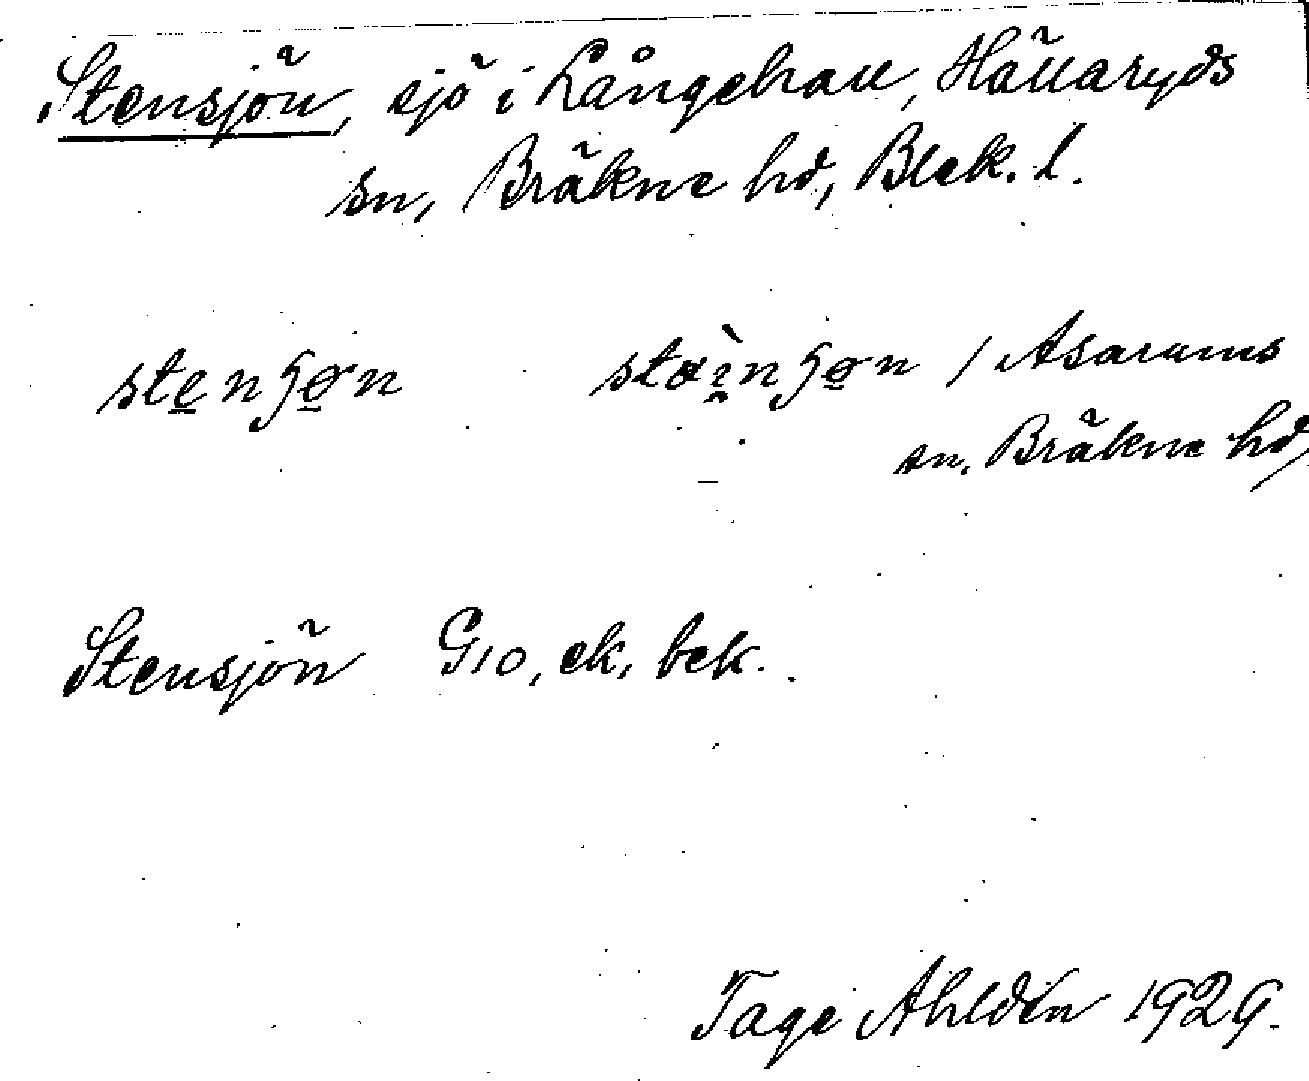 Stensjön, sjö i Långehall, Hällaryds
sn, Bräkne hd, Blek. l.
ste̲nʃø̲n stæì̯nʃø̲n / Asarums
sn. Bräkne hd/
Stensjön G10, ek, bek.
Tage Ahldén 1929.